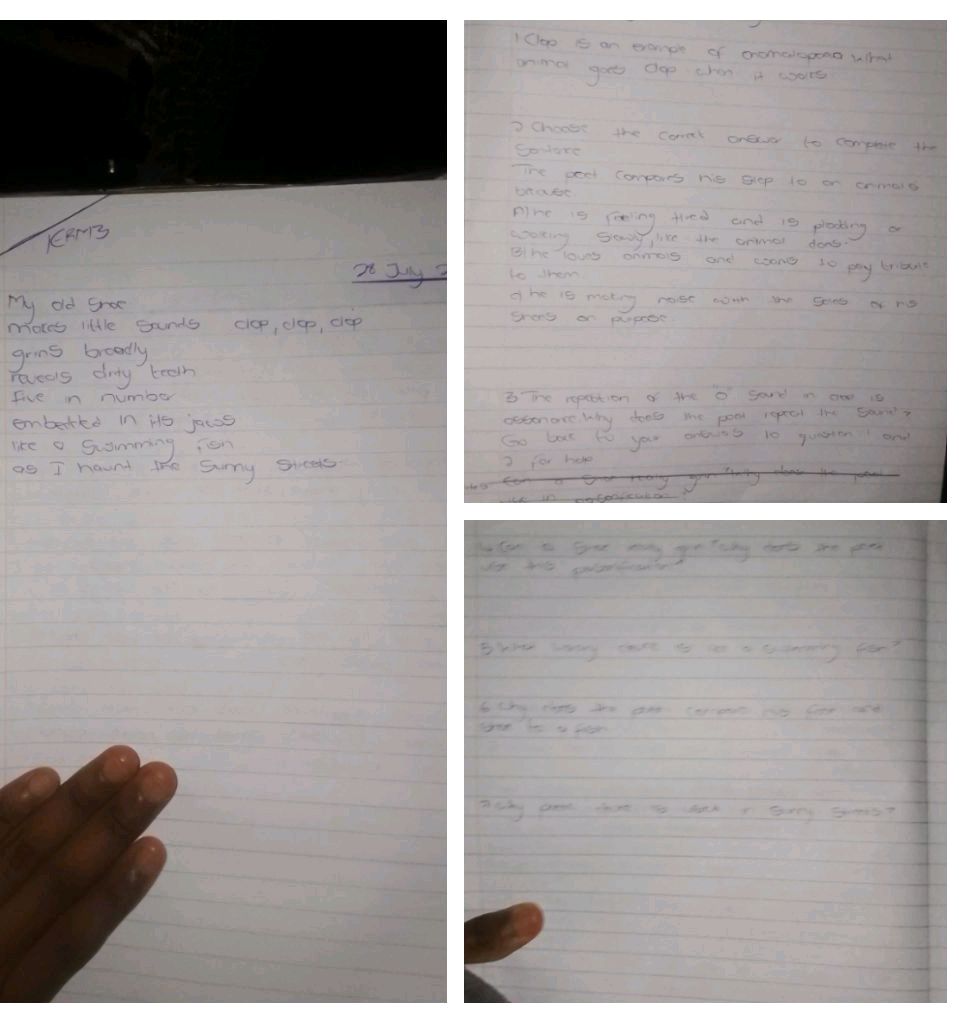 TERM3
28 July 2
My old shoe
makes little sounds clop, clop, clop
grins broadly
reveals dirty teeth
five in number
embetted in its jaws
like a swimming fish
as I haunt the sunny streets
1 Clop is an example of onomatopoeia what
animal goes clop when it walks
2 Choose the correct answer to complete the
sentence
The poet compares his step to an animals
because
A) he is feeling tired and is plodding or
walking slowly, like the animal does.
B) he loves animals and wants to pay tribute
to them.
c) he is making noise with the soles of his
shoes on purpose.
3 The repetition of the "o" sound in is
assonance. Why does the poet repeat the sound?
Go back to your answers to question 1 and
2 for help
Can a shoe really grin? Why does the poet
use this personification?
5 When is like a swimming fish?
6 Why does the poet compare his foot and
shoe to a fish
7 Why have to sunny streets?